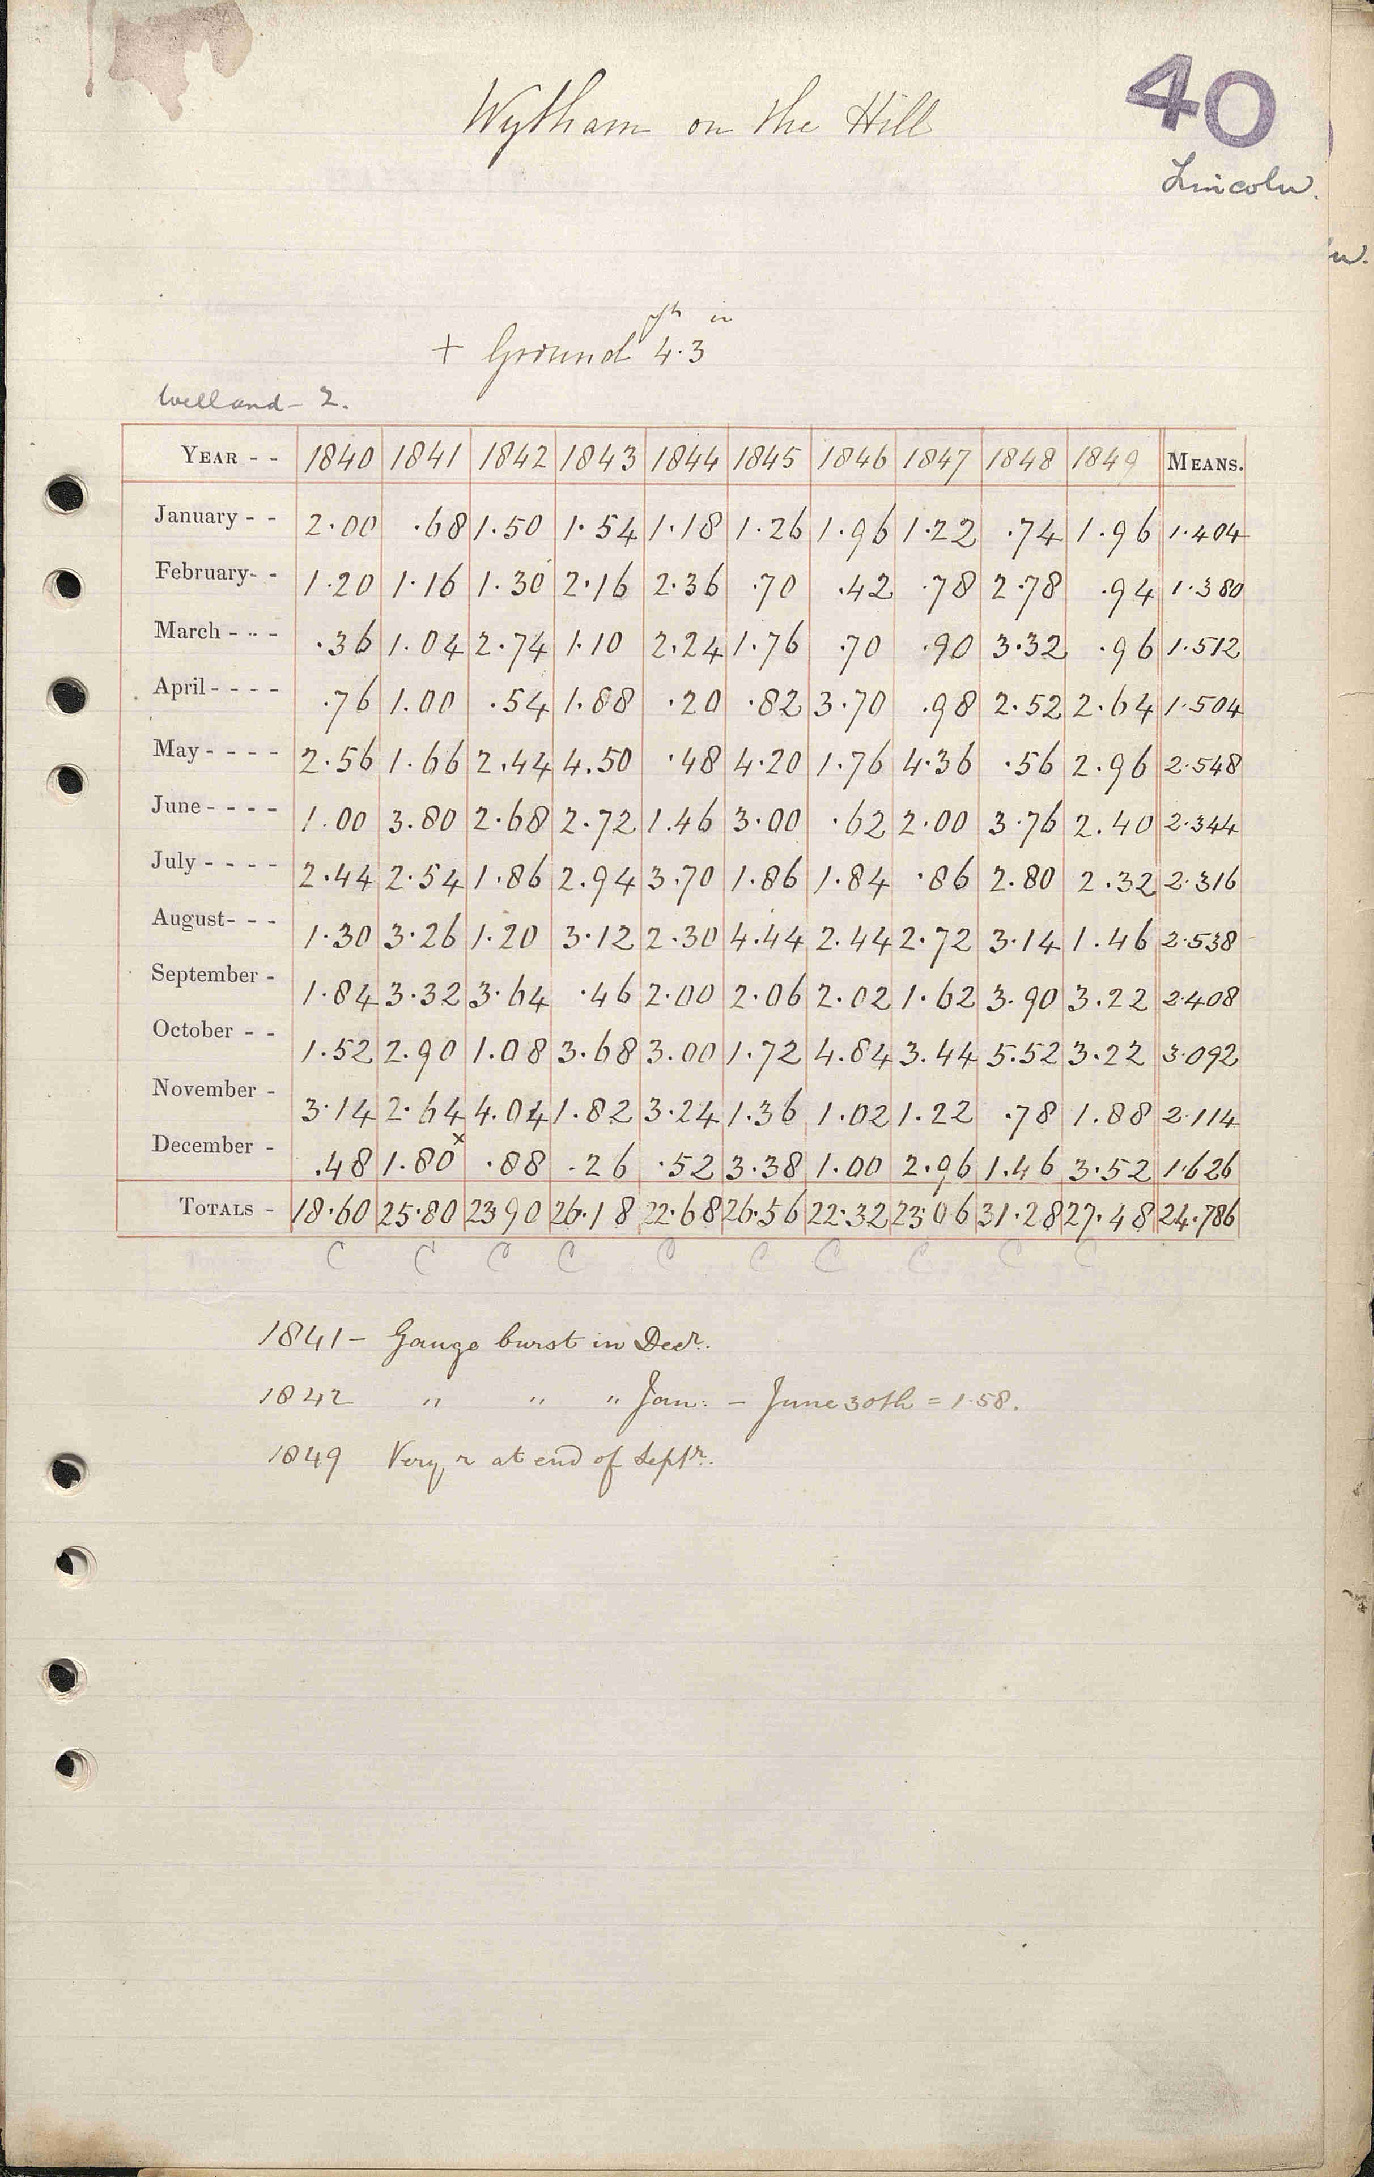 40
Wytham on the Hill
Lincoln.
ft in
+ Ground 4.3
Welland - 2.
YEAR - - 1840 1841 1842 1843 1844 1845 1846 1847 1848 1849 MEANS.
January - - 2.00 .68 1.50 1.54 1.18 1.26 1.96 1.22 .74 1.96 1.404
February- - 1.20 1.16 1.30 2.16 2.36 .70 .42 .78 2.78 .94 1.380
March - - - .36 1.04 2.74 1.10 2.24 1.76 .70 .90 3.32 .96 1.512
April - - - - .76 1.00 .54 1.88 .20 .82 3.70 .98 2.52 2.64 1.504
May - - - - 2.56 1.66 2.44 4.50 .48 4.20 1.76 4.36 .56 2.96 2.548
June - - - - 1.00 3.80 2.68 2.72 1.46 3.00 .62 2.00 3.76 2.40 2.344
July - - - - 2.44 2.54 1.86 2.94 3.70 1.86 1.84 .86 2.80 2.32 2.316
August- - - 1.30 3.26 1.20 3.12 2.30 4.44 2.44 2.72 3.14 1.46 2.538
September - 1.84 3.32 3.64 .46 2.00 2.06 2.02 1.62 3.90 3.22 2.408
October - - 1.52 2.90 1.08 3.68 3.00 1.72 4.84 3.44 5.52 3.22 3.092
November - 3.14 2.64 4.04 1.82 3.24 1.36 1.02 1.22 .78 1.88 2.114
December - .48 1.80x .88 .26 .52 3.38 1.00 2.96 1.46 3.52 1.626
TOTALS - 18.60 25.80 23 90 26.18 22.68 26.56 22.32 23.06 31.28 27.48 24.786
C C C C C C C C C C
1841 - Gauge burst in Decr.
1842 " " " Jan: - June 30th = 1.58.
1849 Very r at end of Septr.